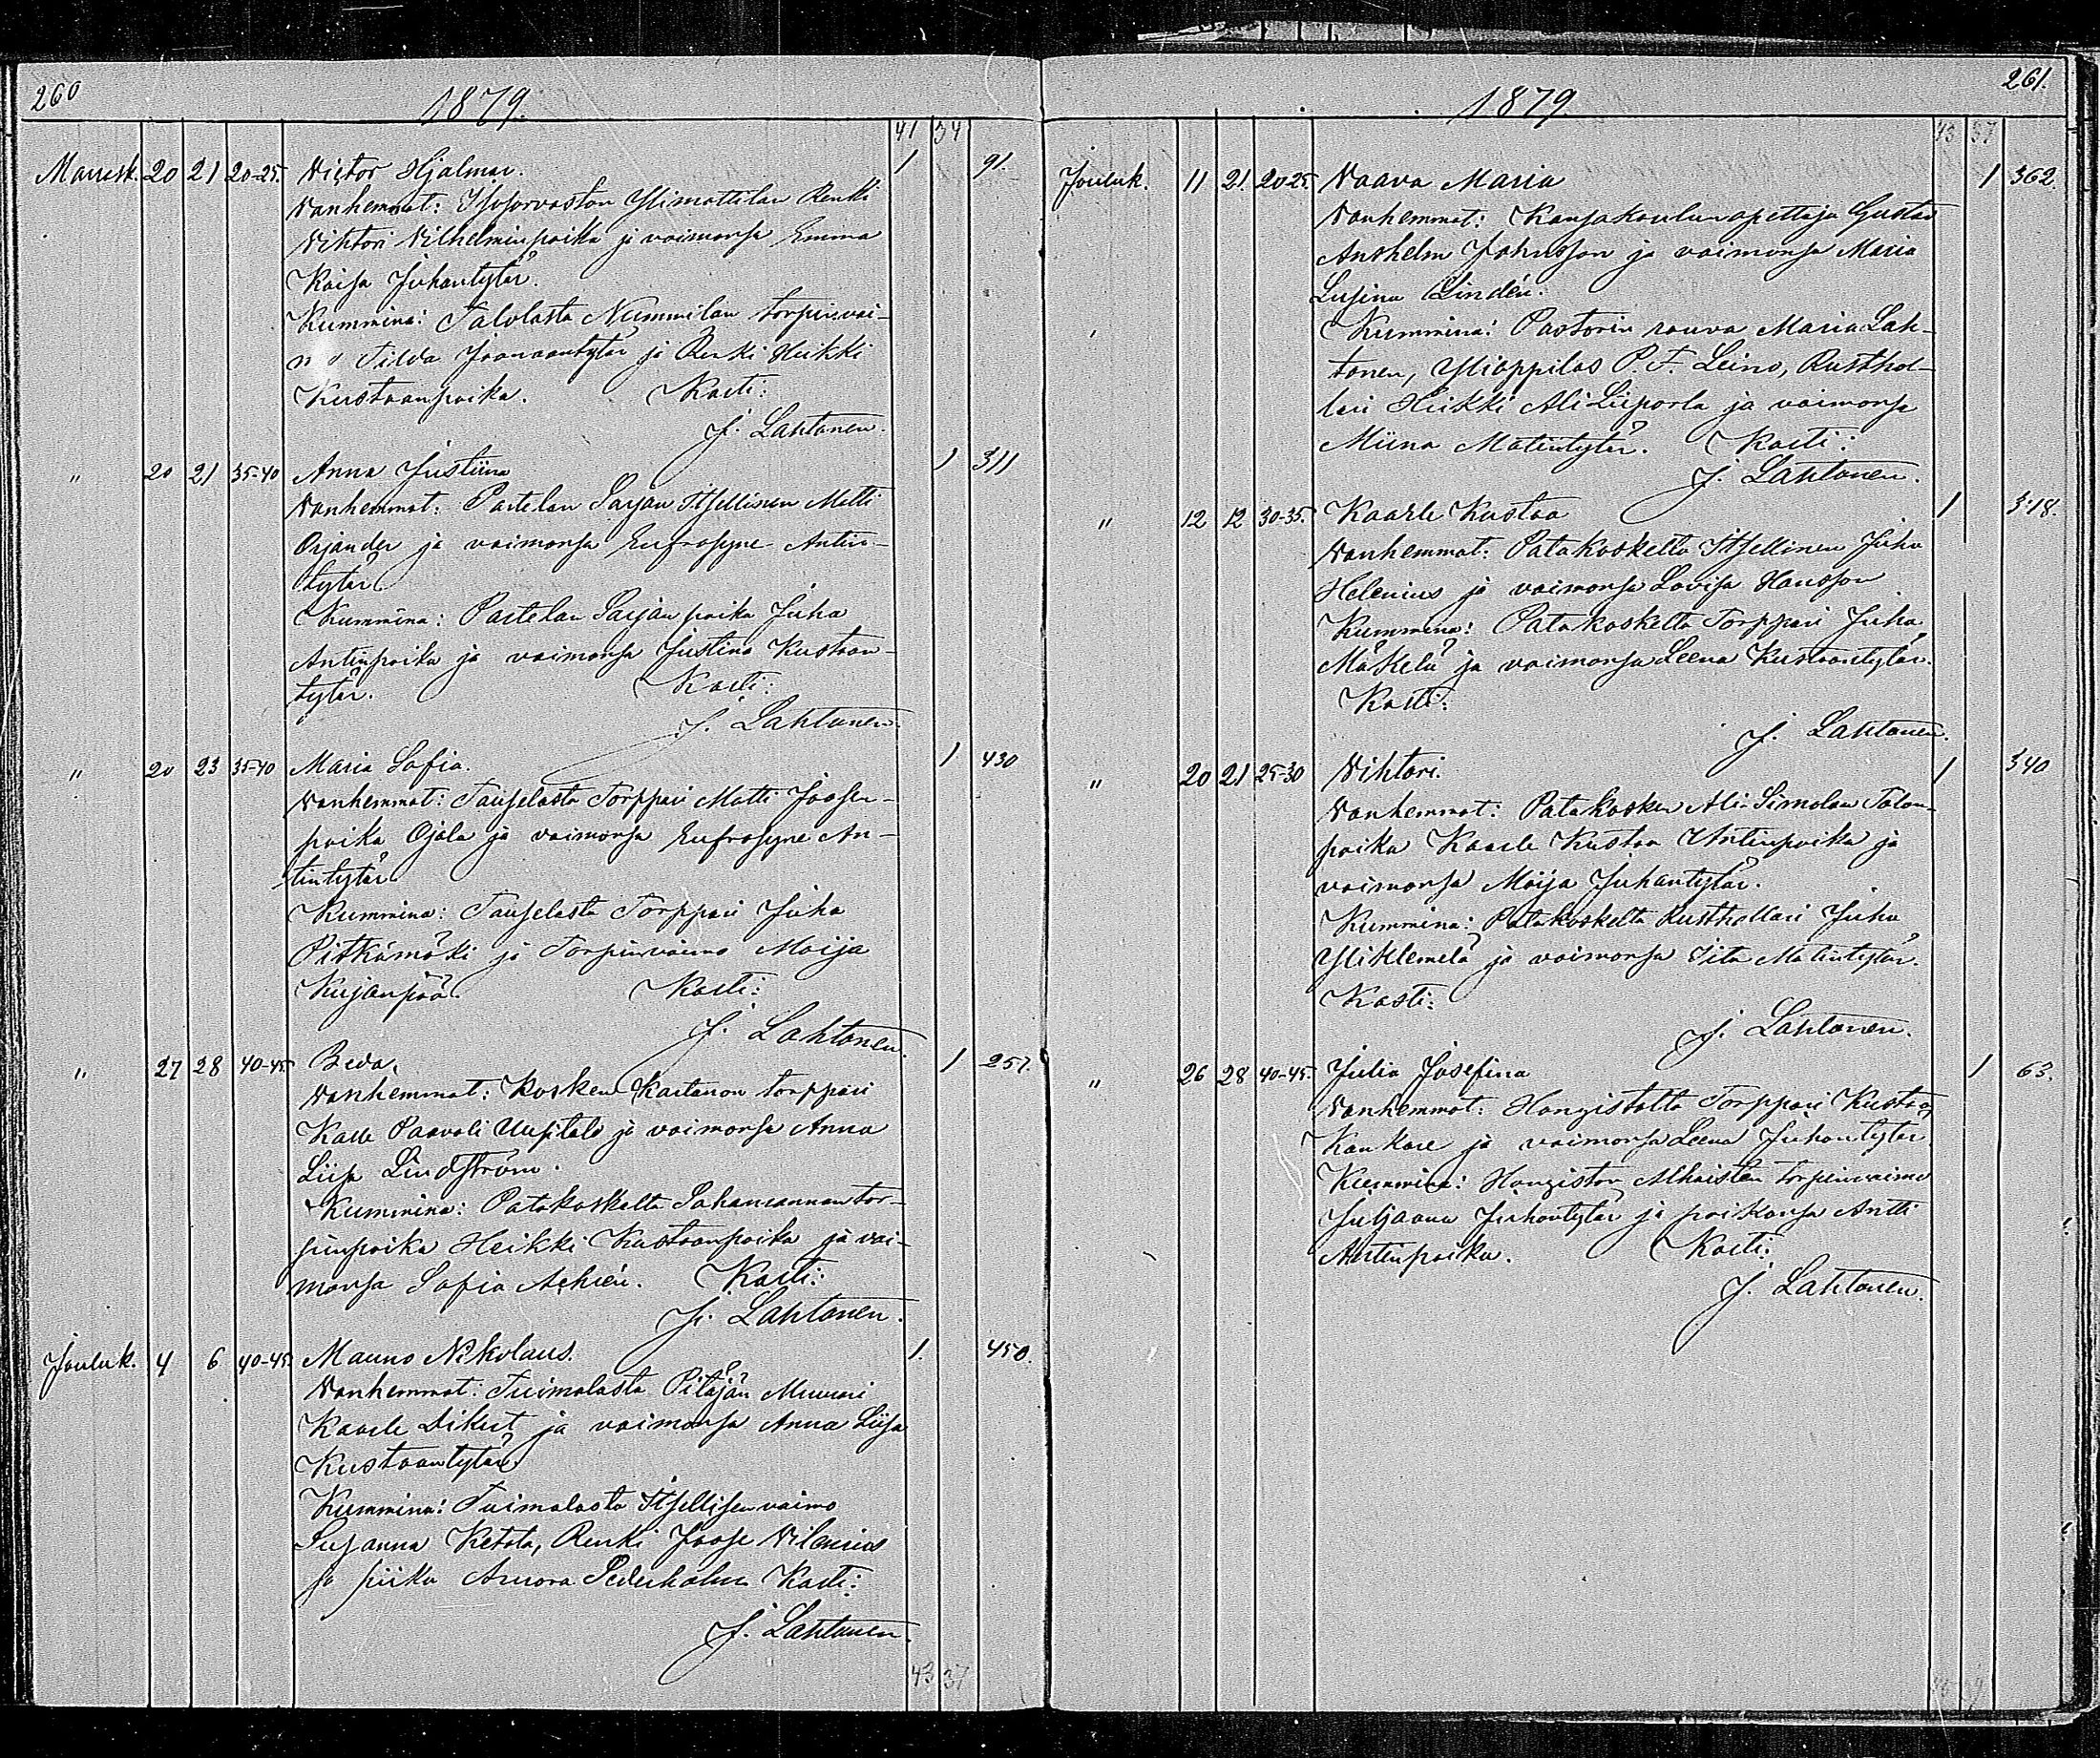 260
1879.
41 34
Marrask. 20 21 20-25. Victor Hjalmar. 1 91.
Vanhemmat: Isosorvaston Ylimattilan Renki
Vihtori Vilhelminpoika ja vaimonsa Emma
Kaisa Juhantytär.
Kummina: Talolasta Nummilan torpin vai-
mo Tilda Joonaantytär ja Renki Heikki
Kustaanpoika. Kasti:
J. Lahtonen.
" 20 21 35-40 Anna Justiina 1 311
Vanhemmat: Partelan Sarjan Itsellinen Matti
Orjander ja vaimonsa Eufrosyne Antin-
tytär
Kummina: Partelan Sarjan poika Juha
Antinpoika ja vaimonsa Justina Kustaan-
tytär. Kasti:
J. Lahtonen.
" 20 23 35-40 Maria Sofia. 1 430
Vanhemmat: Tauselasta Torppari Matti Joosen-
poika Ojala ja vaimonsa Eufrosyne An-
tintytär
Kummina: Tauselasta Torppari Juha
Pitkämäki ja Torpinvaimo Maija
Kujanpää. Kasti:
J. Lahtonen.
" 27 28 40-45. Beda. 1 257.
Vanhemmat: Kosken Kartanon torppari
Kalle Paavali Uusitalo ja vaimonsa Anna
Liisa Lindström.
Kummina: Patakoskelta Sahanrannan tor-
pinpoika Heikki Kustaanpoika ja vai-
monsa Sofia Achrén. Kasti:
J. Lahtonen.
Jouluk. 4 6 40-45. Mauno Nikolaus. 1. 450.
Vanhemmat: Tuimalasta Pitäjän Muurari
Kaarle Dikert ja vaimonsa Anna Liisa
Kustaantytär
Kummina: Tuimalasta Itsellisen vaimo
Susanna Ketola, Renki Joose Vilenius
ja piika Aurora Sederholm Kasti:
J. Lahtonen.
43 37
261.
1879.
43 37
Jouluk. 11 21 20-25. Vaava Maria 1 362.
Vanhemmat: Kansakoulunopettaja Gustav
Anshelm Johnsson ja vaimonsa Maria
Lusina Lindén.
Kummina: Pastorin rouva Maria Lah-
tonen, Ylioppilas P. F. Leino, Rusthol-
lari Heikki Ali-Liiporla ja vaimonsa
Miina Matintytär. Kasti:
J. Lahtonen.
" 12 12 30-35. Kaarle Kustaa 1 318.
Vanhemmat: Patakoskelta Itsellinen Juha
Helenius ja vaimonsa Lovisa Hansson
Kummina: Patakoskelta Torppari Juha
Mäkelä ja vaimonsa Leena Kustaantytär.
Kasti:
J. Lahtonen.
" 20 21 25-30 Vihtori. 1 340
Vanhemmat: Patakosken Ali-Simolan Talon-
poika Kaarle Kustaa Antinpoika ja
vaimonsa Maija Juhantytär.
Kummina: Patakoskelta Rusthollari Juha
Yliklemelä ja vaimonsa Iita Matintytär.
Kasti:
J. Lahtonen.
" 26 28 40-45. Julia Josefina 1 63.
Vanhemmat: Hongistolta Torppari Kustaa
Kankare ja vaimonsa Leena Juhantytär
Kummina: Hongiston Alhaisten torpinvaimo
Juljaana Juhantytär ja poikansa Antti
Antinpoika. Kasti:
J. Lahtonen.